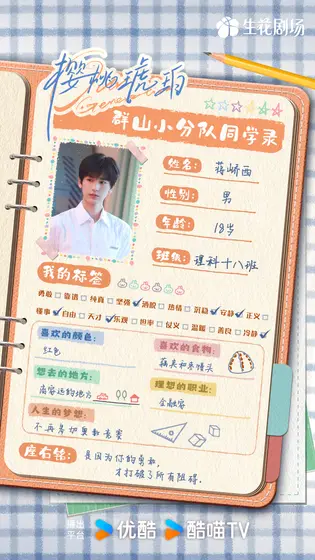 生花剧场
樱桃琥珀
群山小分队同学录
姓名: 蒋峤西
性别: 男
年龄: 18岁
班级: 理科十八班
我的标签
勇敢 靠谱 纯真 坚强 洒脱 热情 沉稳 安静 正义
懂事 自由 天才 乐观 坦率 仗义 温暖 善良 冷静
喜欢的颜色:
红色
喜欢的食物:
想去的地方:
南容远的地方
理想的职业:
金融家
人生的梦想:
不再参加奥数竞赛
座右铭:
是因为你的勇敢,
才打破了所有阻碍。
播出平台
优酷
酷喵TV